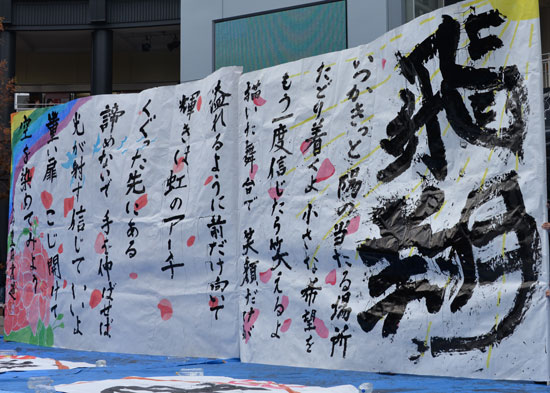 飛翔
いつかきっと陽の当たる場所
たどり着くよ小さな希望を
もう一度信じたら笑えるよ
描いた舞台で 笑顔だけ
溢れるように前だけ向いて
輝きは虹のアーチ
くぐった先にある
諦めないで 手を伸ばせば
光が射す信じていいよ
重い扉 こじ開けて
空を染めてみよう